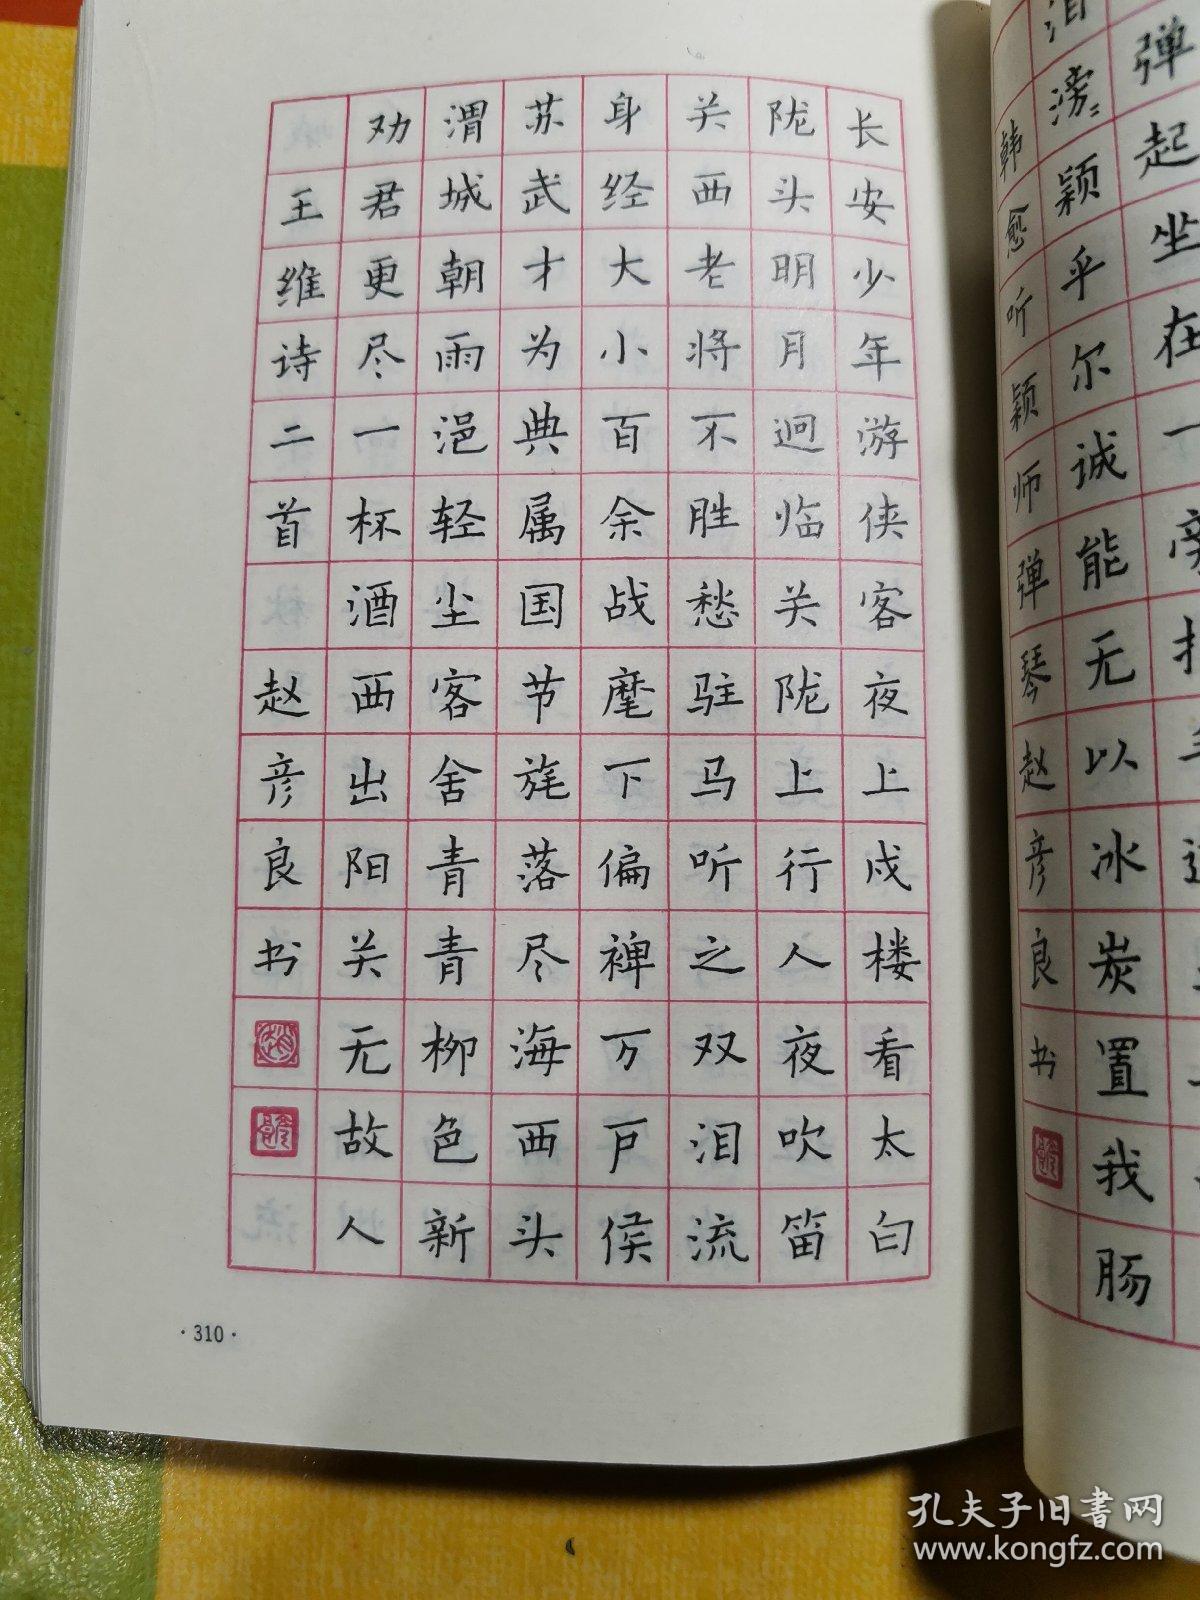 长安少年游侠客夜上戍楼看太白
陇头明月迥临关陇上行人夜吹笛
关西老将不胜愁驻马听之双泪流
身经大小百余战麾下偏裨万户侯
苏武才为典属国节旄落尽海西头
渭城朝雨浥轻尘客舍青青柳色新
劝君更尽一杯酒西出阳关无故人
王维诗二首 赵彦良书
·310·
弹起坐在一
泪滂〻颖乎尔诚能无以冰炭置我肠
韩愈听颖师弹琴赵彦良书
孔夫子旧书网
www.kongfz.com